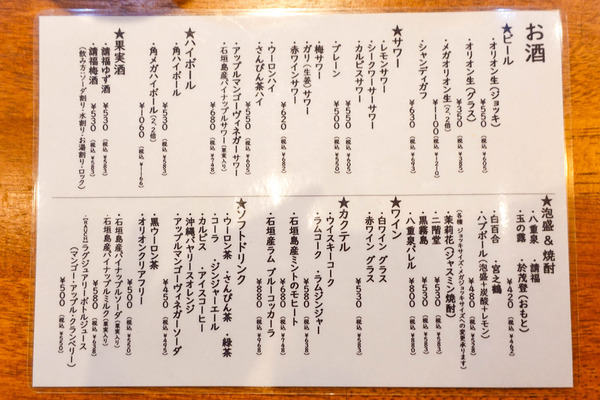 お酒
★ビール
・オリオン生(ジョッキ)
¥550(税込 ¥605)
・オリオン生(グラス)
¥350(税込 ¥385)
・メガオリオン生(2.2倍)
¥1100(税込 ¥1210)
・シャンディガフ
¥630(税込 ¥693)
★サワー
・レモンサワー
・シークワーサーサワー
・カルピスサワー
¥500(税込 ¥550)
・プレーン
¥500(税込 ¥550)
・梅サワー
・ガリ(生姜)サワー
・赤ワインサワー
¥620(税込 ¥682)
・ウーロンハイ
・さんぴん茶ハイ
¥550(税込 ¥605)
・アップルマンゴーヴィネガーサワー
・石垣島産パイナップルサワー(果実入り)
¥680(税込 ¥748)
★ハイボール
・角ハイボール
¥530(税込 ¥583)
・角メガハイボール(2.2倍)
¥1060(税込 ¥1166)
★果実酒
・請福ゆず酒
¥530(税込 ¥583)
・請福梅酒
¥530(税込 ¥583)
(飲み方:ソーダ割り・水割り・お湯割り・ロック)
★泡盛&焼酎
・八重泉 ・請福
・玉の露 ・於茂登(おもと)
¥420(税込 ¥462)
・白百合 ・宮之鶴
・ハブボール(泡盛+炭酸+レモン)
¥480(税込 ¥528)
(各種 ジョッキサイズ・メガジョッキサイズへの変更承ります)
・茉莉花(ジャスミン焼酎)
・二階堂
¥530(税込 ¥583)
・黒霧島
¥530(税込 ¥583)
・八重泉バレル
¥800(税込 ¥880)
★ワイン
・白ワイン グラス
・赤ワイン グラス
¥530(税込 ¥583)
★カクテル
・ラムコーク ・ラムジンジャー
・ウイスキーコーク
¥580(税込 ¥638)
・石垣島産ミントのモヒート
¥680(税込 ¥748)
・石垣産ラム ブルーコッカーラ
¥880(税込 ¥968)
★ソフトドリンク
・ウーロン茶 ・さんぴん茶 ・緑茶
・コーラ ・ジンジャーエール
・カルピス ・アイスコーヒー
・沖縄バヤリースオレンジ
・アップルマンゴーヴィネガーソーダ
¥450(税込 ¥495)
・黒ウーロン茶
・オリオンクリアフリー
¥500(税込 ¥550)
・石垣島産パイナップルソーダ(果実入り)
・石垣島産パイナップルミルク(果実入り)
¥580(税込 ¥638)
・【RAUCH】ラグジュアリーボトルジュース
(マンゴー・アップル・クランベリー)
¥500(税込 ¥550)